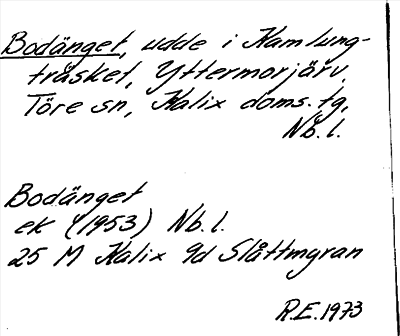 Bodänget, udde i Kamlung-
träsket, Yttermorjärv,
Töre sn, Kalix doms. tg,
Nb. l.
Bodänget
ek (1953) Nb. l.
25 M Kalix 9d Slåttmgran
R.E. 1973